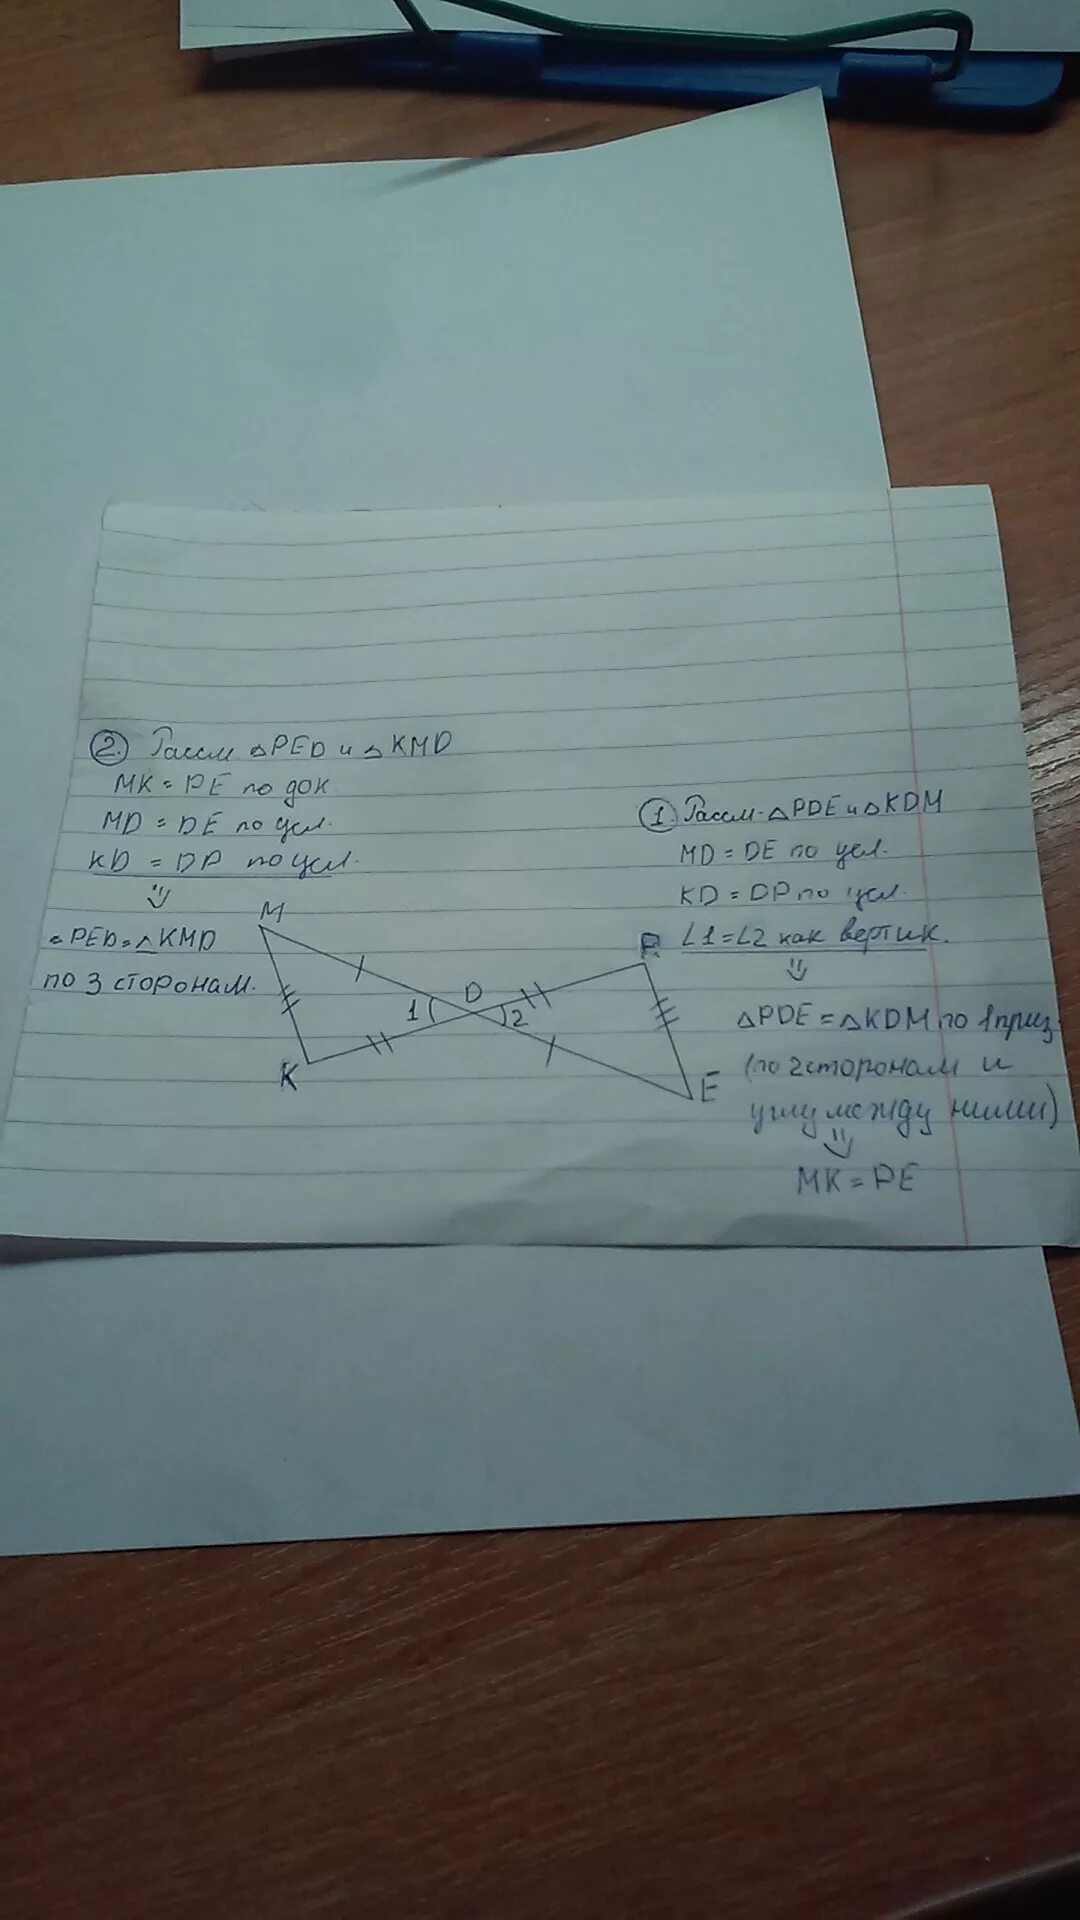 2. Рассм. △PED и △KMD
MK = PE по док.
MD = DE по усл.
KD = DP по усл.
⇓
△PED = △KMD
по 3 сторонам.
1. Рассм. △PDE и △KDM
MD = DE по усл.
KD = DP по усл.
∠1 = ∠2 как вертик.
⇓
△PDE = △KDM по 1 приз.
(по 2 сторонам и
углу между ними)
⇓
MK = PE
M
K
1
D
2
P
E